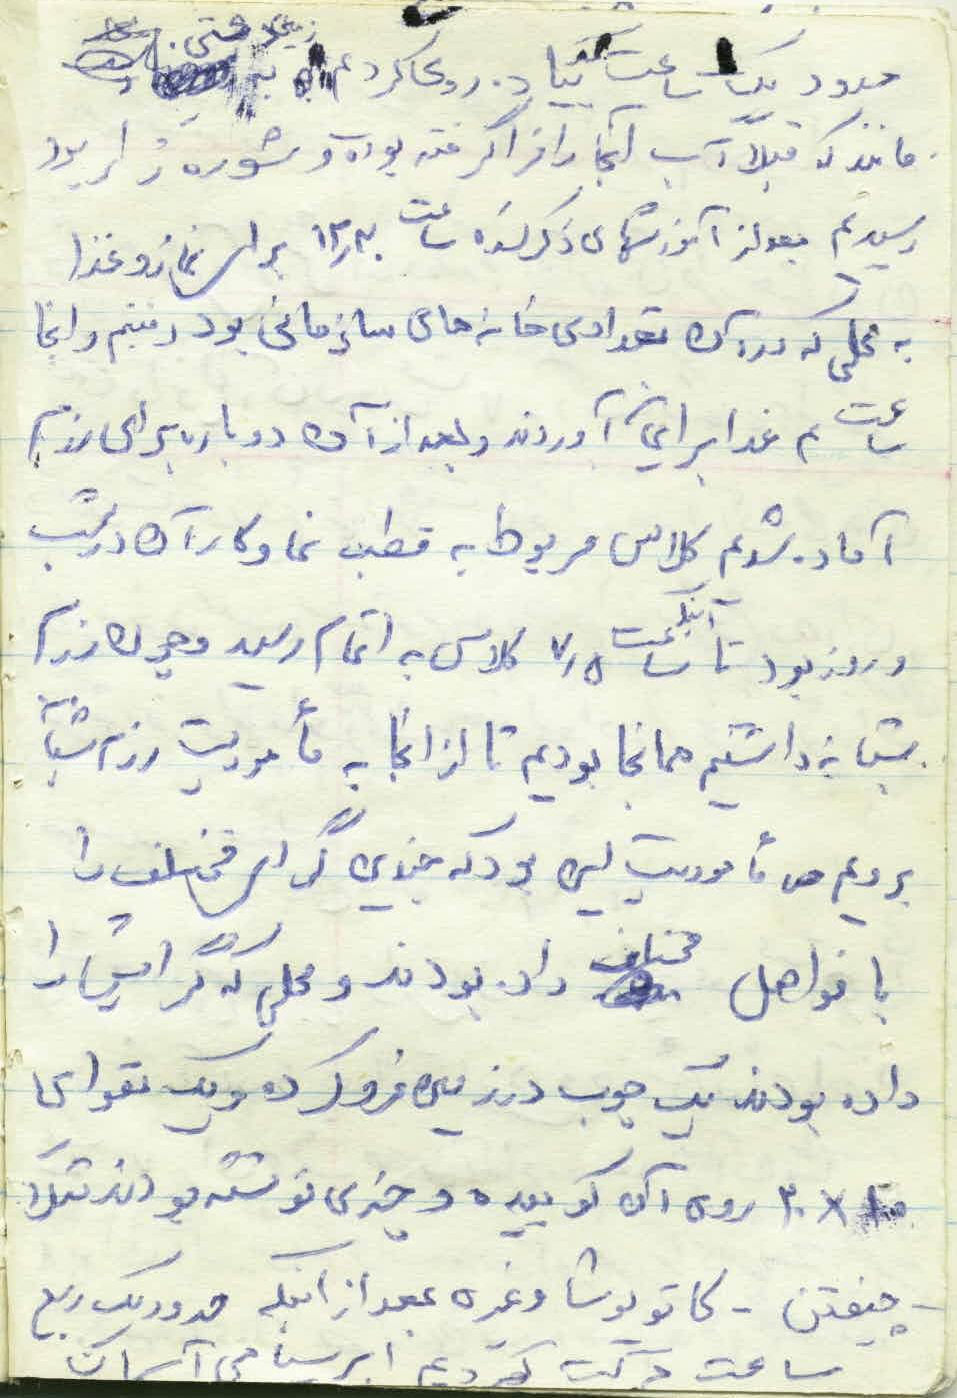 حدود یک ساعت پیاده روی کردیم به زمین
مانند که قبلاً آب آنجا را فرا گرفته بوده و شوره زار بود
رسیدیم بعد از آموزشهای ذکر شده ساعت ۱۲٫۳۰ برای نماز و غذا
به محلی که در آن تعدادی خانه های سازمانی بود رفتیم و آنجا
ساعت ۲ غذا برایمان آوردند و بعد از آن دوباره برای رزم
آماده شدیم کلاس مربوط به قطب نما و کار آن در شب
و روز بود تا آنکه ساعت ۷٫۵ کلاس به اتمام رسید و چون رزم
شبانه داشتیم همانجا بودیم تا از آنجا به مأموریت رزم شبانه
برویم مأموریت این بود که چندین گرای مختلف را
با فواصل مختلف داده بودند و محلی که گرایش را
داده بودند یک چوب در زمین فرو کرده و یک مقوای
۳۰ × روی آن کوبیده و چیزی نوشته بودند مثلا
- چیفتن - کاتیوشا و غیره بعد از اینکه حدود یک ربع
ساعت حرکت کردیم ابر سیاهی آسمان